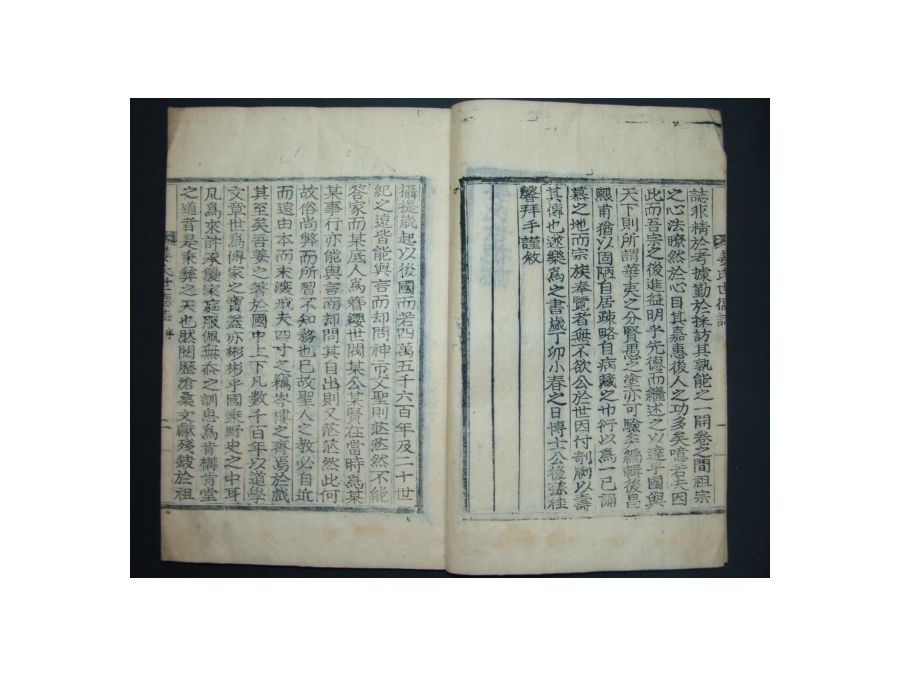 誌非精於考據勤於採訪其孰能之一開卷之間祖宗
之心法瞭然於心目其嘉惠後人之功多矣噫若天因
此而吾宗之後進益明乎先德而繼述之以達乎國與
天下則所謂華夷之分賢愚之塗亦可驗矣編輯後昌
熙甫猶以固陋自居疎略自病藏之巾衍以爲一己誦
慕之地而宗族奉覽者無不欲公於世因付剞劂以壽
其傳也遂樂爲之書歲丁卯小春之日博士公後孫桂
馨拜手謹敘
姜氏世德誌
攝提歲起以後國而若四萬五千六百年及二十世
紀之遠皆能與言而却問神市文聖則茫茫然不能
答家而某底人爲簪纓世閥某公某賢在當時爲某
某事行亦能與言而却問其自出則又茫然此何
故俗尚弊而所習不知務也已故聖人之教必自近
而遠由本而末淺戒夫四寸之竊岑樓之齊焉於戲
其至矣吾姜之著於國中上下凡數千百年以道學
文章世爲傳家之寶蓋亦彬彬乎國乘野史之中耳
凡爲來許承襲家庭服佩無忝之訓思爲肯構肯堂
之道者是秉彝之天也然閱歷滄桑文獻殘缺於祖
姜氏世德誌 序